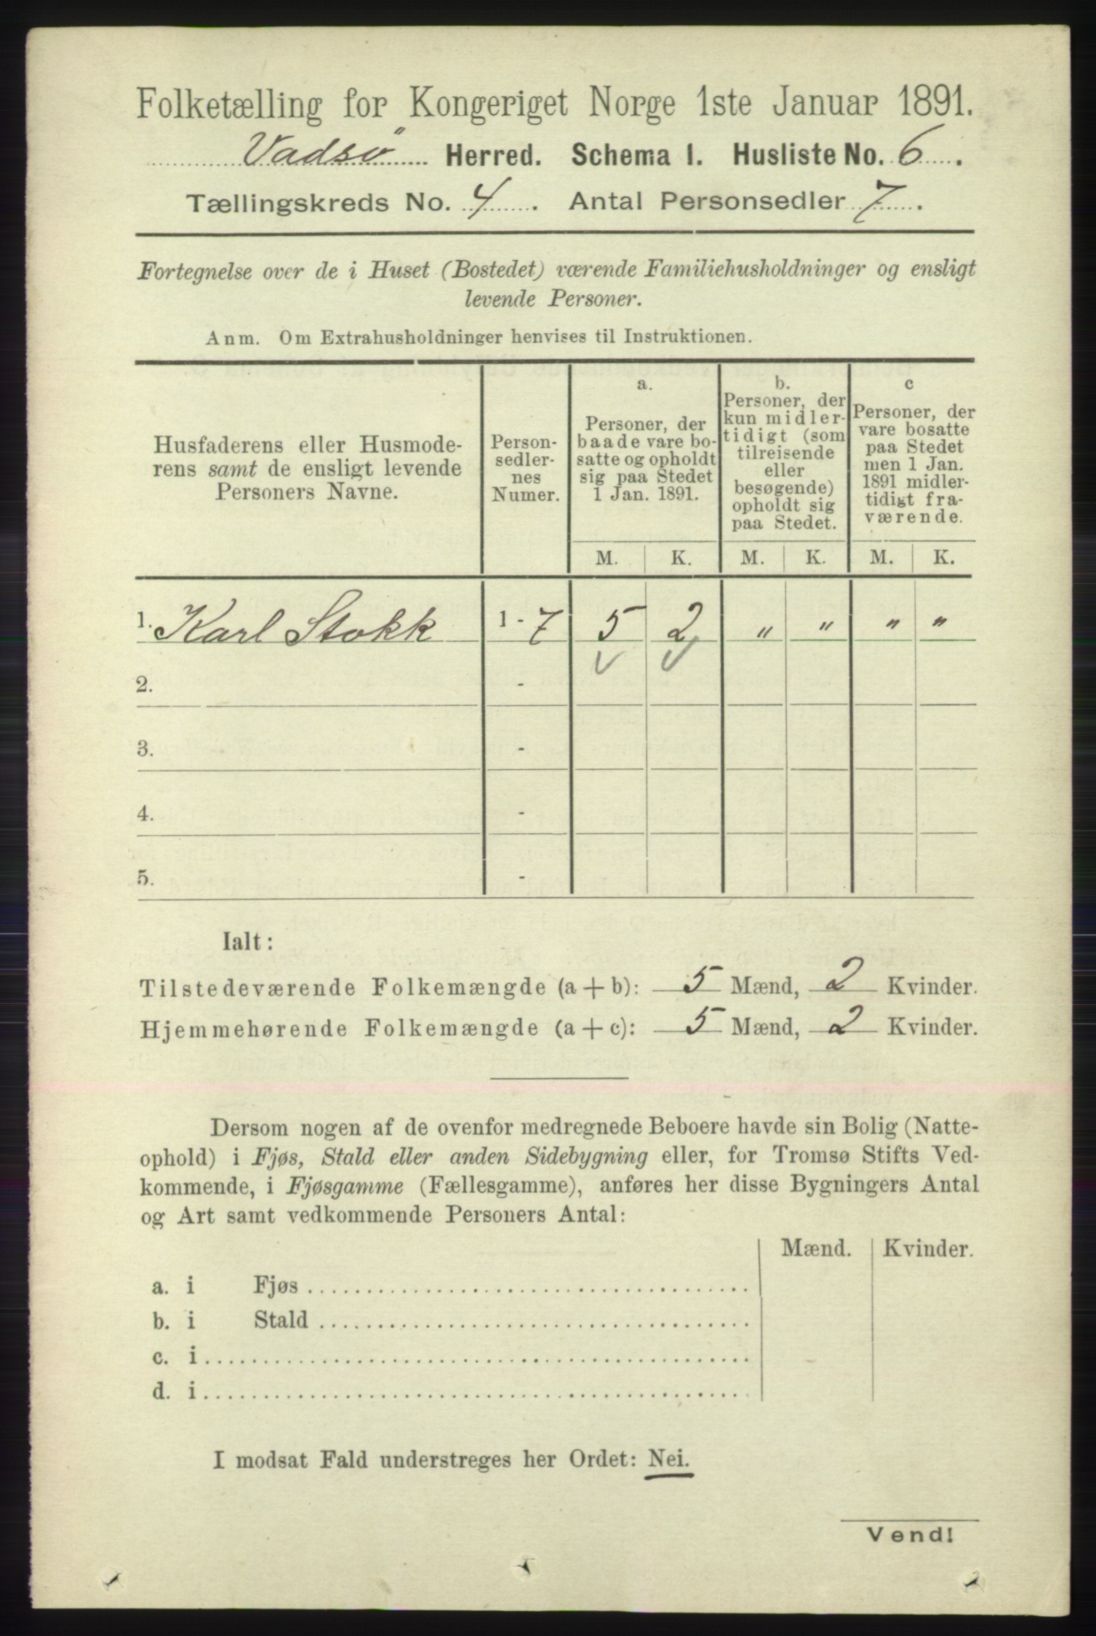 Folketælling for Kongeriget Norge 1ste Januar 1891.
Vadsø Herred. Schema I. Husliste No. 6.
Tællingskreds No. 4. Antal Personsedler 7.
Fortegnelse over de i Huset (Bostedet) værende Familiehusholdninger og ensligt
levende Personer.
Anm. Om Extrahusholdninger henvises til Instruktionen.
Husfaderens eller Husmode-
rens samt de ensligt levende
Personers Navne.
Person-
sedler-
nes
Numer.
a.
Personer, der
baade vare bo-
satte og opholdt
sig paa Stedet
1 Jan. 1891.
b.
Personer, der
kun midler-
tidigt (som
tilreisende
eller
besøgende)
opholdt sig
paa Stedet.
c
Personer, der
vare bosatte
paa Stedet
men 1 Jan.
1891 midler-
tidigt fra-
værende.
M. K. M. K. M. K.
1. Karl Stokk 1-7 5 2 " " " "
2. -
3. -
4. -
5. -
Ialt:
Tilstedeværende Folkemængde (a + b): 5 Mænd, 2 Kvinder.
Hjemmehørende Folkemængde (a + c): 5 Mænd, 2 Kvinder.
Dersom nogen af de ovenfor medregnede Beboere havde sin Bolig (Natte-
ophold) i Fjøs, Stald eller anden Sidebygning eller, for Tromsø Stifts Ved-
kommende, i Fjøsgamme (Fællesgamme), anføres her disse Bygningers Antal
og Art samt vedkommende Personers Antal:
Mænd. Kvinder.
a. i Fjøs
b. i Stald
c. i
d. i
I modsat Fald understreges her Ordet: Nei.
Vend!